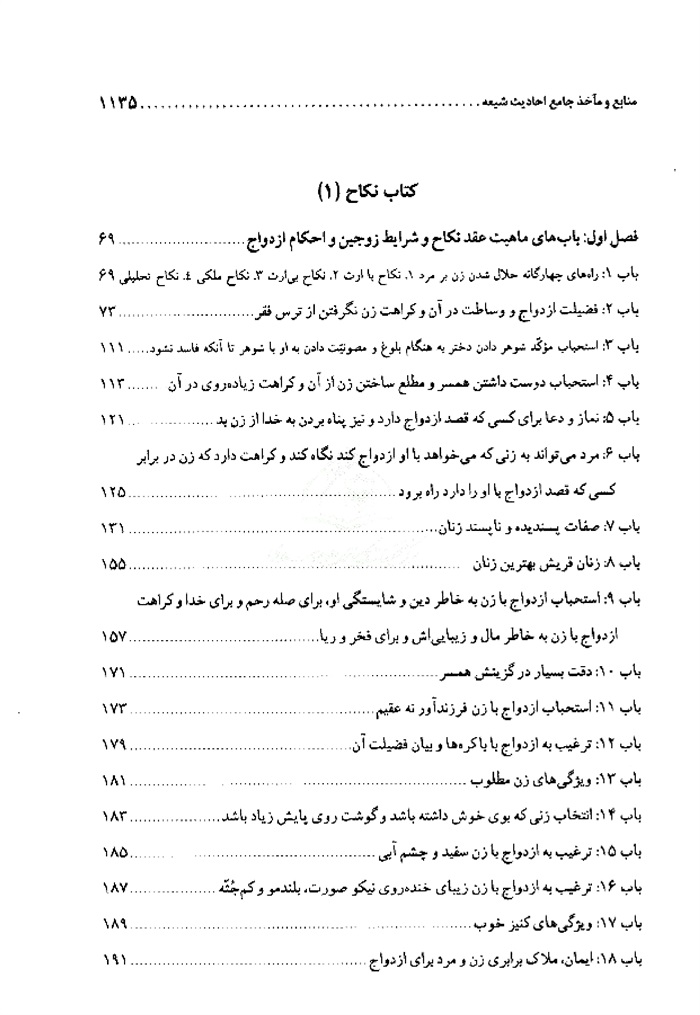 منابع و مآخذ جامع احادیث شیعه ........ ۱۱۳۵
کتاب نکاح (۱)
فصل اول: باب‌های ماهیت عقد نکاح و شرایط زوجین و احکام ازدواج ........ ۶۹
باب ۱: راه‌های چهارگانه حلال شدن زن بر مرد ۱. نکاح با ارث ۲. نکاح بی‌ارث ۳. نکاح ملکی ٤. نکاح تحلیلی ۶۹
باب ۲: فضیلت ازدواج و وساطت در آن و کراهت زن نگرفتن از ترس فقر ........ ۷۳
باب ۳: استحباب مؤکّد شوهر دادن دختر به هنگام بلوغ و مصونیّت دادن به او با شوهر تا آنکه فاسد نشود ..... ۱۱۱
باب ۴: استحباب دوست داشتن همسر و مطلع ساختن زن از آن و کراهت زیاده‌روی در آن ....... ۱۱۳
باب ۵: نماز و دعا برای کسی که قصد ازدواج دارد و نیز پناه بردن به خدا از زن بد ........ ۱۲۱
باب ۶: مرد می‌تواند به زنی که می‌خواهد با او ازدواج کند نگاه کند و کراهت دارد که زن در برابر
کسی که قصد ازدواج با او را دارد راه برود ........ ۱۲۵
باب ۷: صفات پسندیده و ناپسند زنان ........ ۱۳۱
باب ۸: زنان قریش بهترین زنان ........ ۱۵۵
باب ۹: استحباب ازدواج با زن به خاطر دین و شایستگی او، برای صله رحم و برای خدا و کراهت
ازدواج با زن به خاطر مال و زیبایی‌اش و برای فخر و ریا ........ ۱۵۷
باب ۱۰: دقت بسیار در گزینش همسر ........ ۱۷۱
باب ۱۱: استحباب ازدواج با زن فرزندآور نه عقیم ........ ۱۷۳
باب ۱۲: ترغیب به ازدواج با باکره‌ها و بیان فضیلت آن ........ ۱۷۹
باب ۱۳: ویژگی‌های زن مطلوب ........ ۱۸۱
باب ۱۴: انتخاب زنی که بوی خوش داشته باشد و گوشت روی پایش زیاد باشد ........ ۱۸۳
باب ۱۵: ترغیب به ازدواج با زن سفید و چشم آبی ........ ۱۸۵
باب ۱۶: ترغیب به ازدواج با زن زیبای خنده‌روی نیکو صورت، بلندمو و کم‌جُثّه ........ ۱۸۷
باب ۱۷: ویژگی‌های کنیز خوب ........ ۱۸۹
باب ۱۸: ایمان، ملاک برابری زن و مرد برای ازدواج ........ ۱۹۱